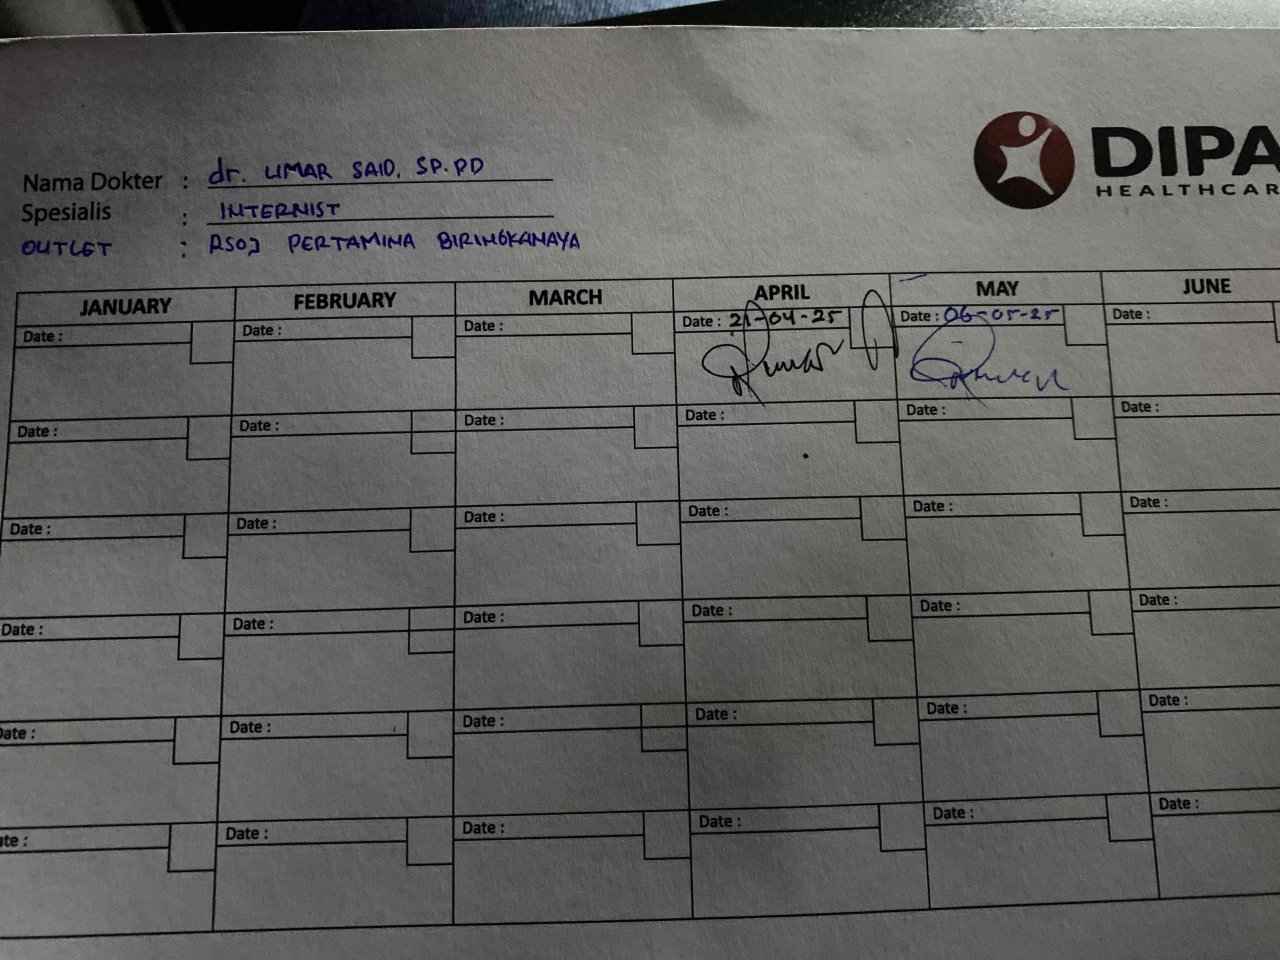 DIPA
HEALTHCAR
Nama Dokter : dr. UMAR SAID, SP.PD
Spesialis : INTERNIST
OUTLET : RSOJ PERTAMINA BIRINGKANAYA
JANUARY FEBRUARY MARCH APRIL MAY JUNE
Date : Date : Date : Date : 21-04-25 Date : 06-05-25 Date :
Date : Date : Date : Date : Date : Date :
Date : Date : Date : Date : Date : Date :
Date : Date : Date : Date : Date : Date :
Date : Date : Date : Date : Date : Date :
ate : Date : Date : Date : Date : Date :